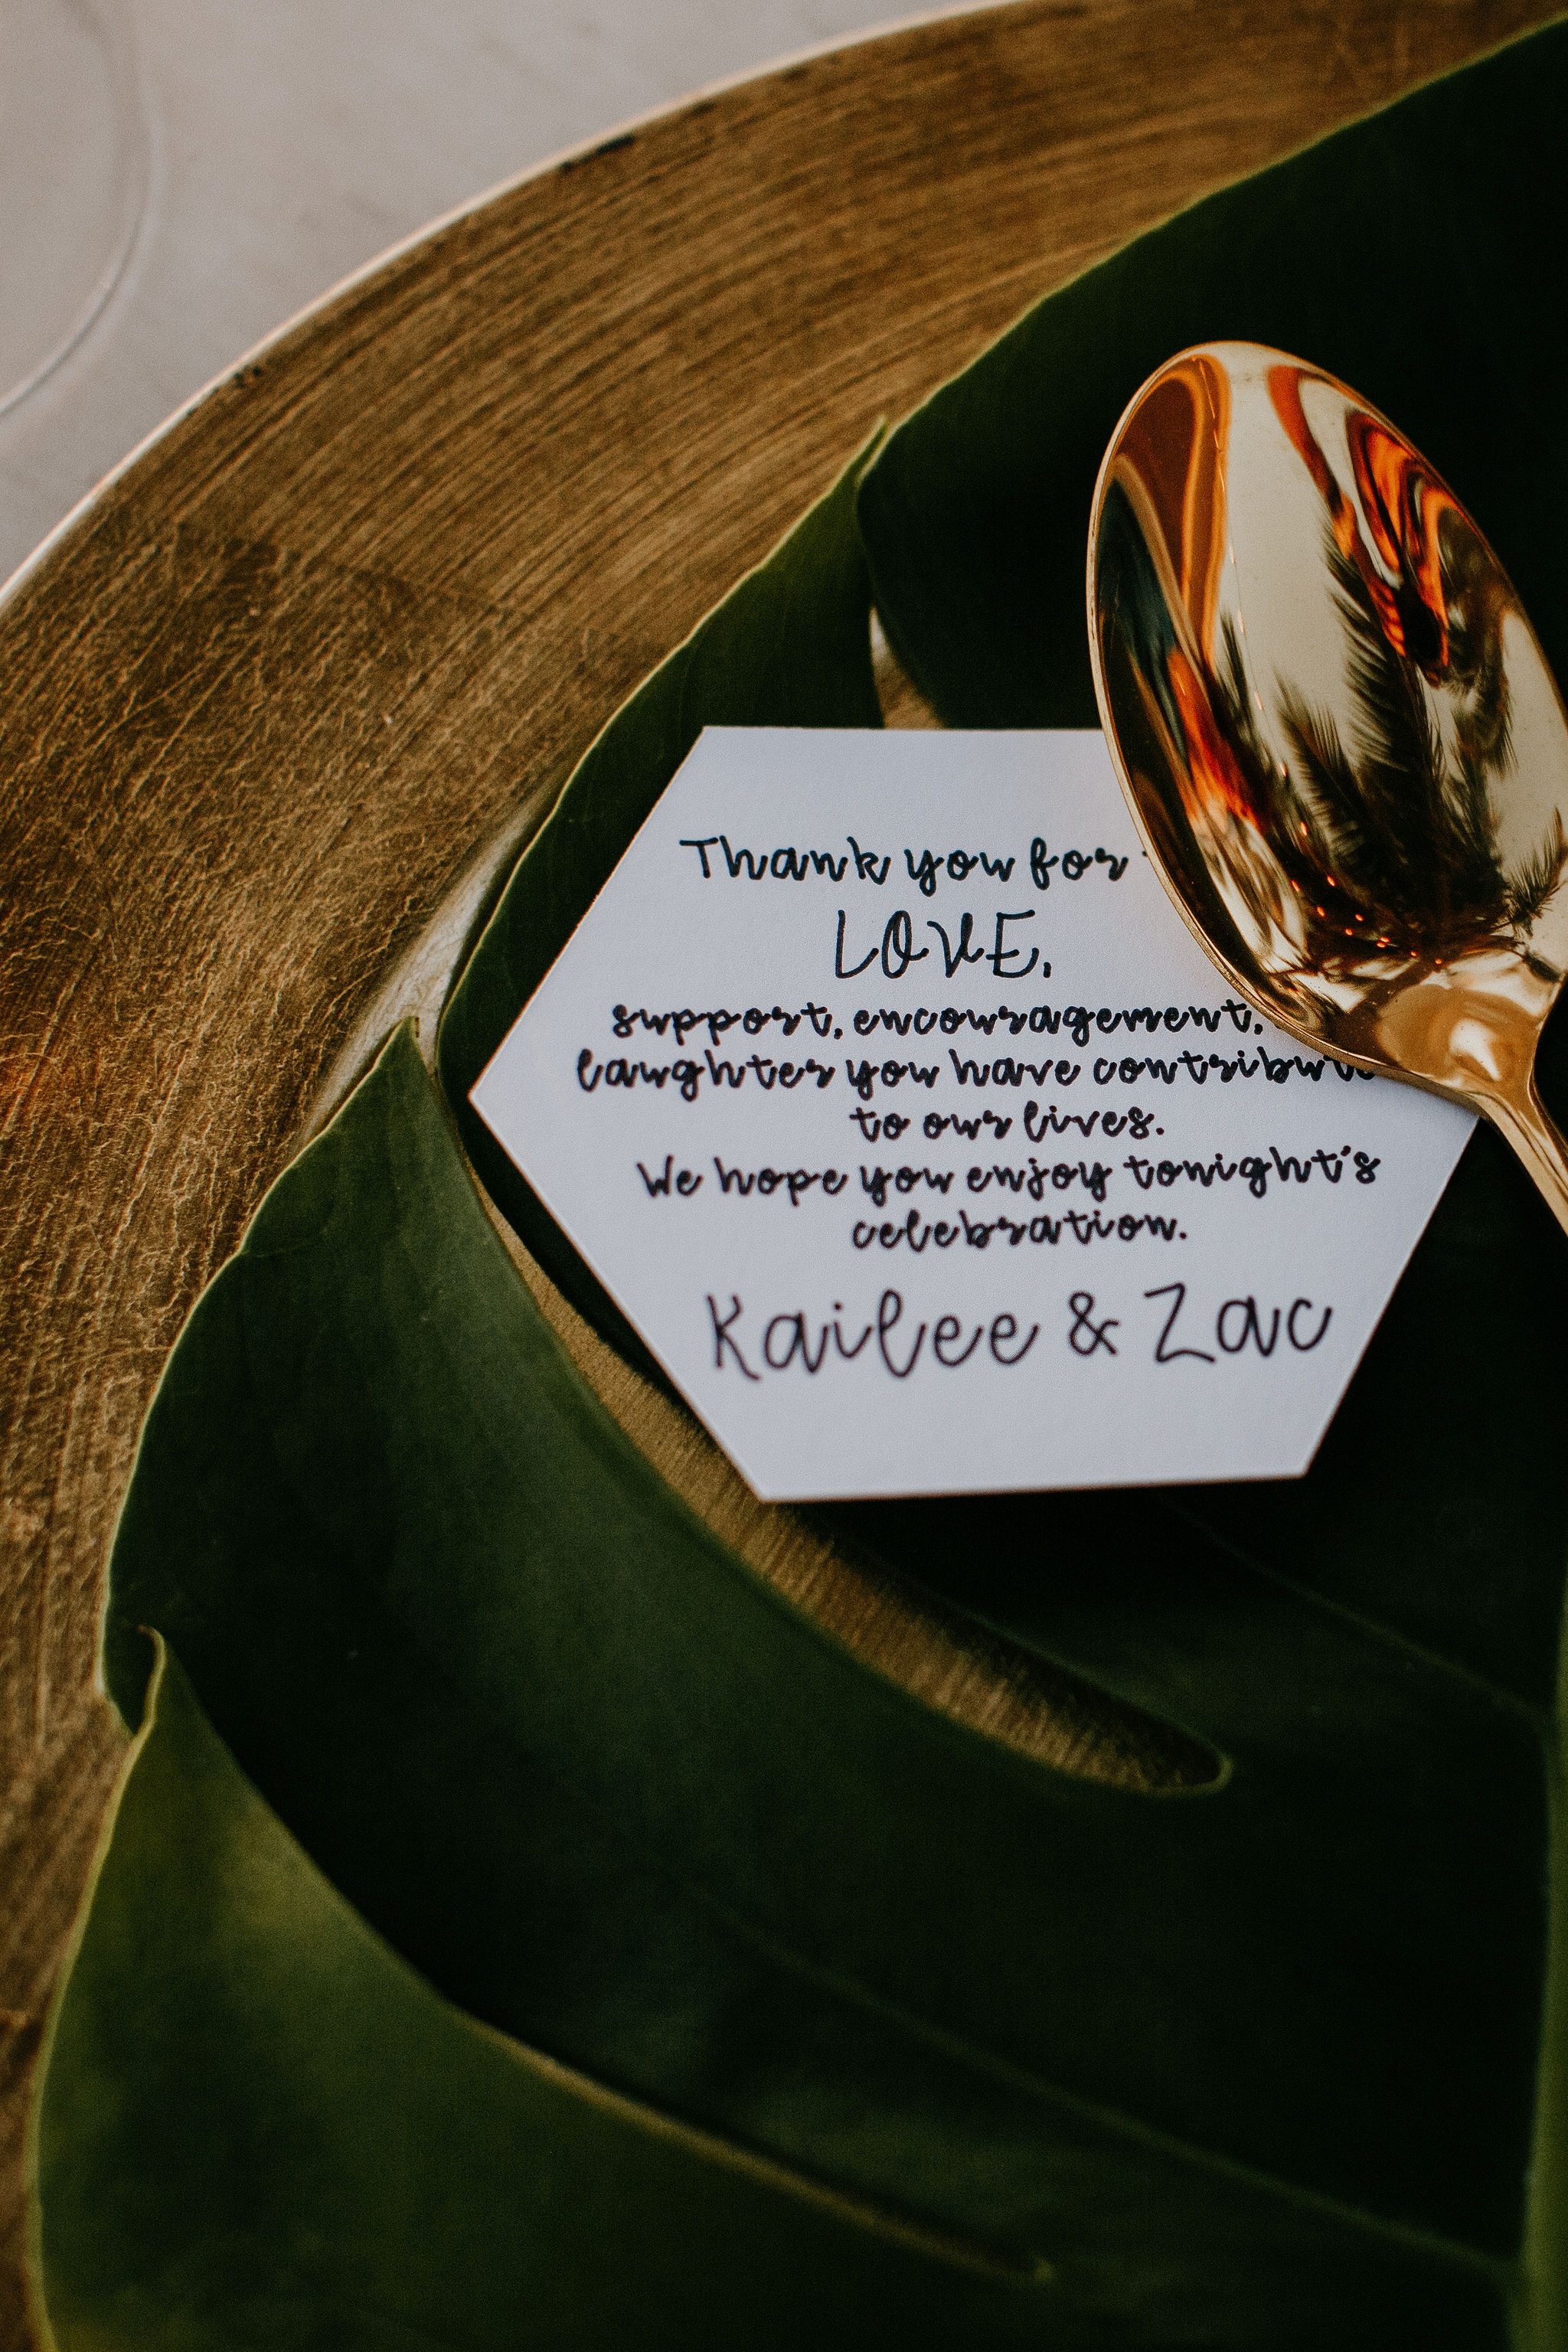 Thank you for
LOVE,
support, encouragement,
laughter you have
to our lives.
We hope you enjoy tonight's
celebration.
Kailee & Zac